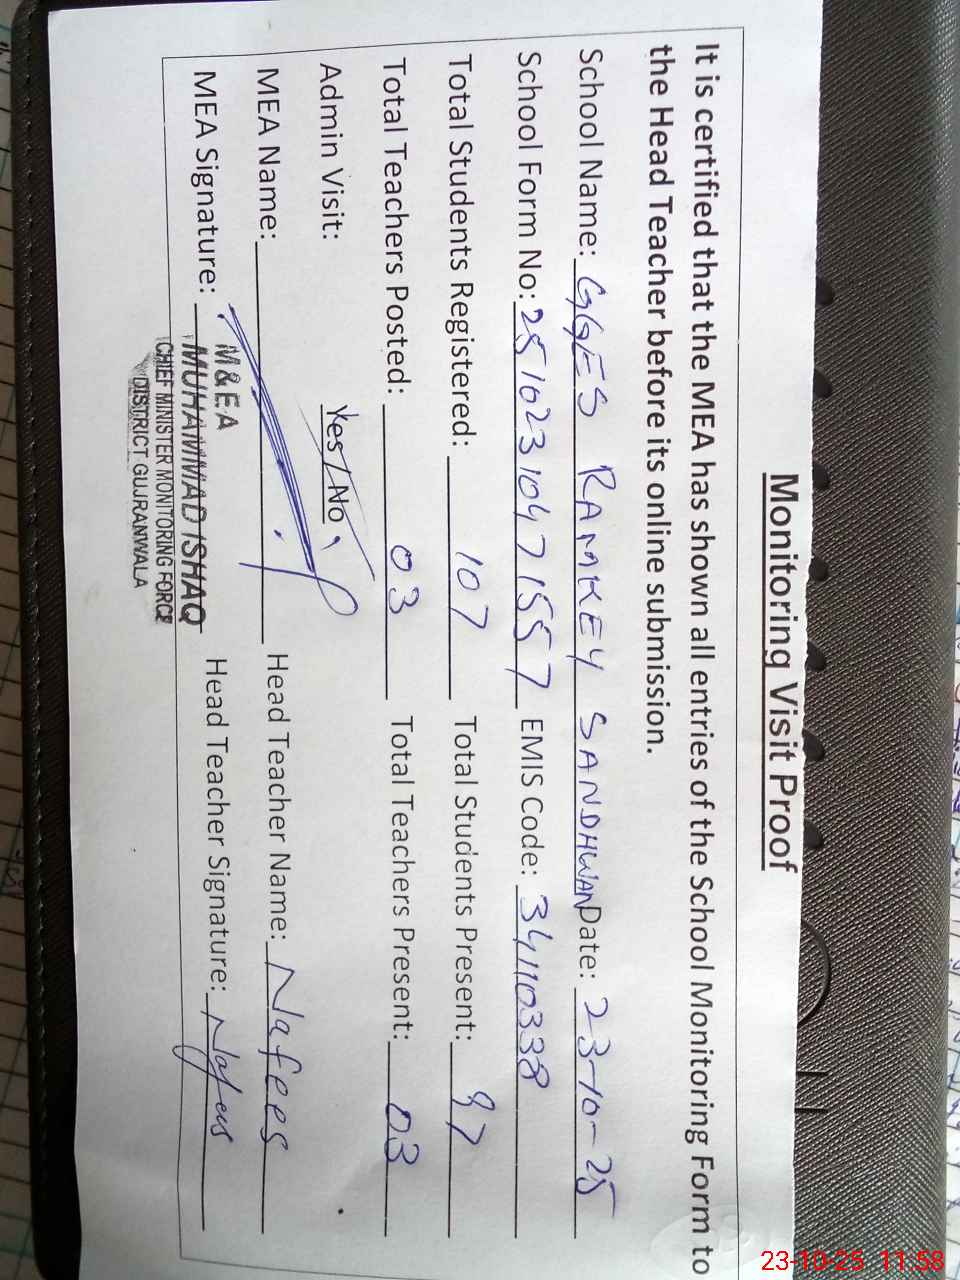 Monitoring Visit Proof
It is certified that the MEA has shown all entries of the School Monitoring Form to
the Head Teacher before its online submission.
School Name: GGES RAMKEY SANDHWAN Date: 23-10-25
School Form No: 25102310471557 EMIS Code: 34110338
Total Students Registered: 107 Total Students Present: 97
Total Teachers Posted: 03 Total Teachers Present: 03
Admin Visit: Yes/No
MEA Name: Head Teacher Name: Nafees
MEA Signature: Head Teacher Signature: Nafees
M&EA
MUHAMMAD ISHAQ
CHIEF MINISTER MONITORING FORCE
DISTRICT GUJRANWALA
23-10-25 11:58